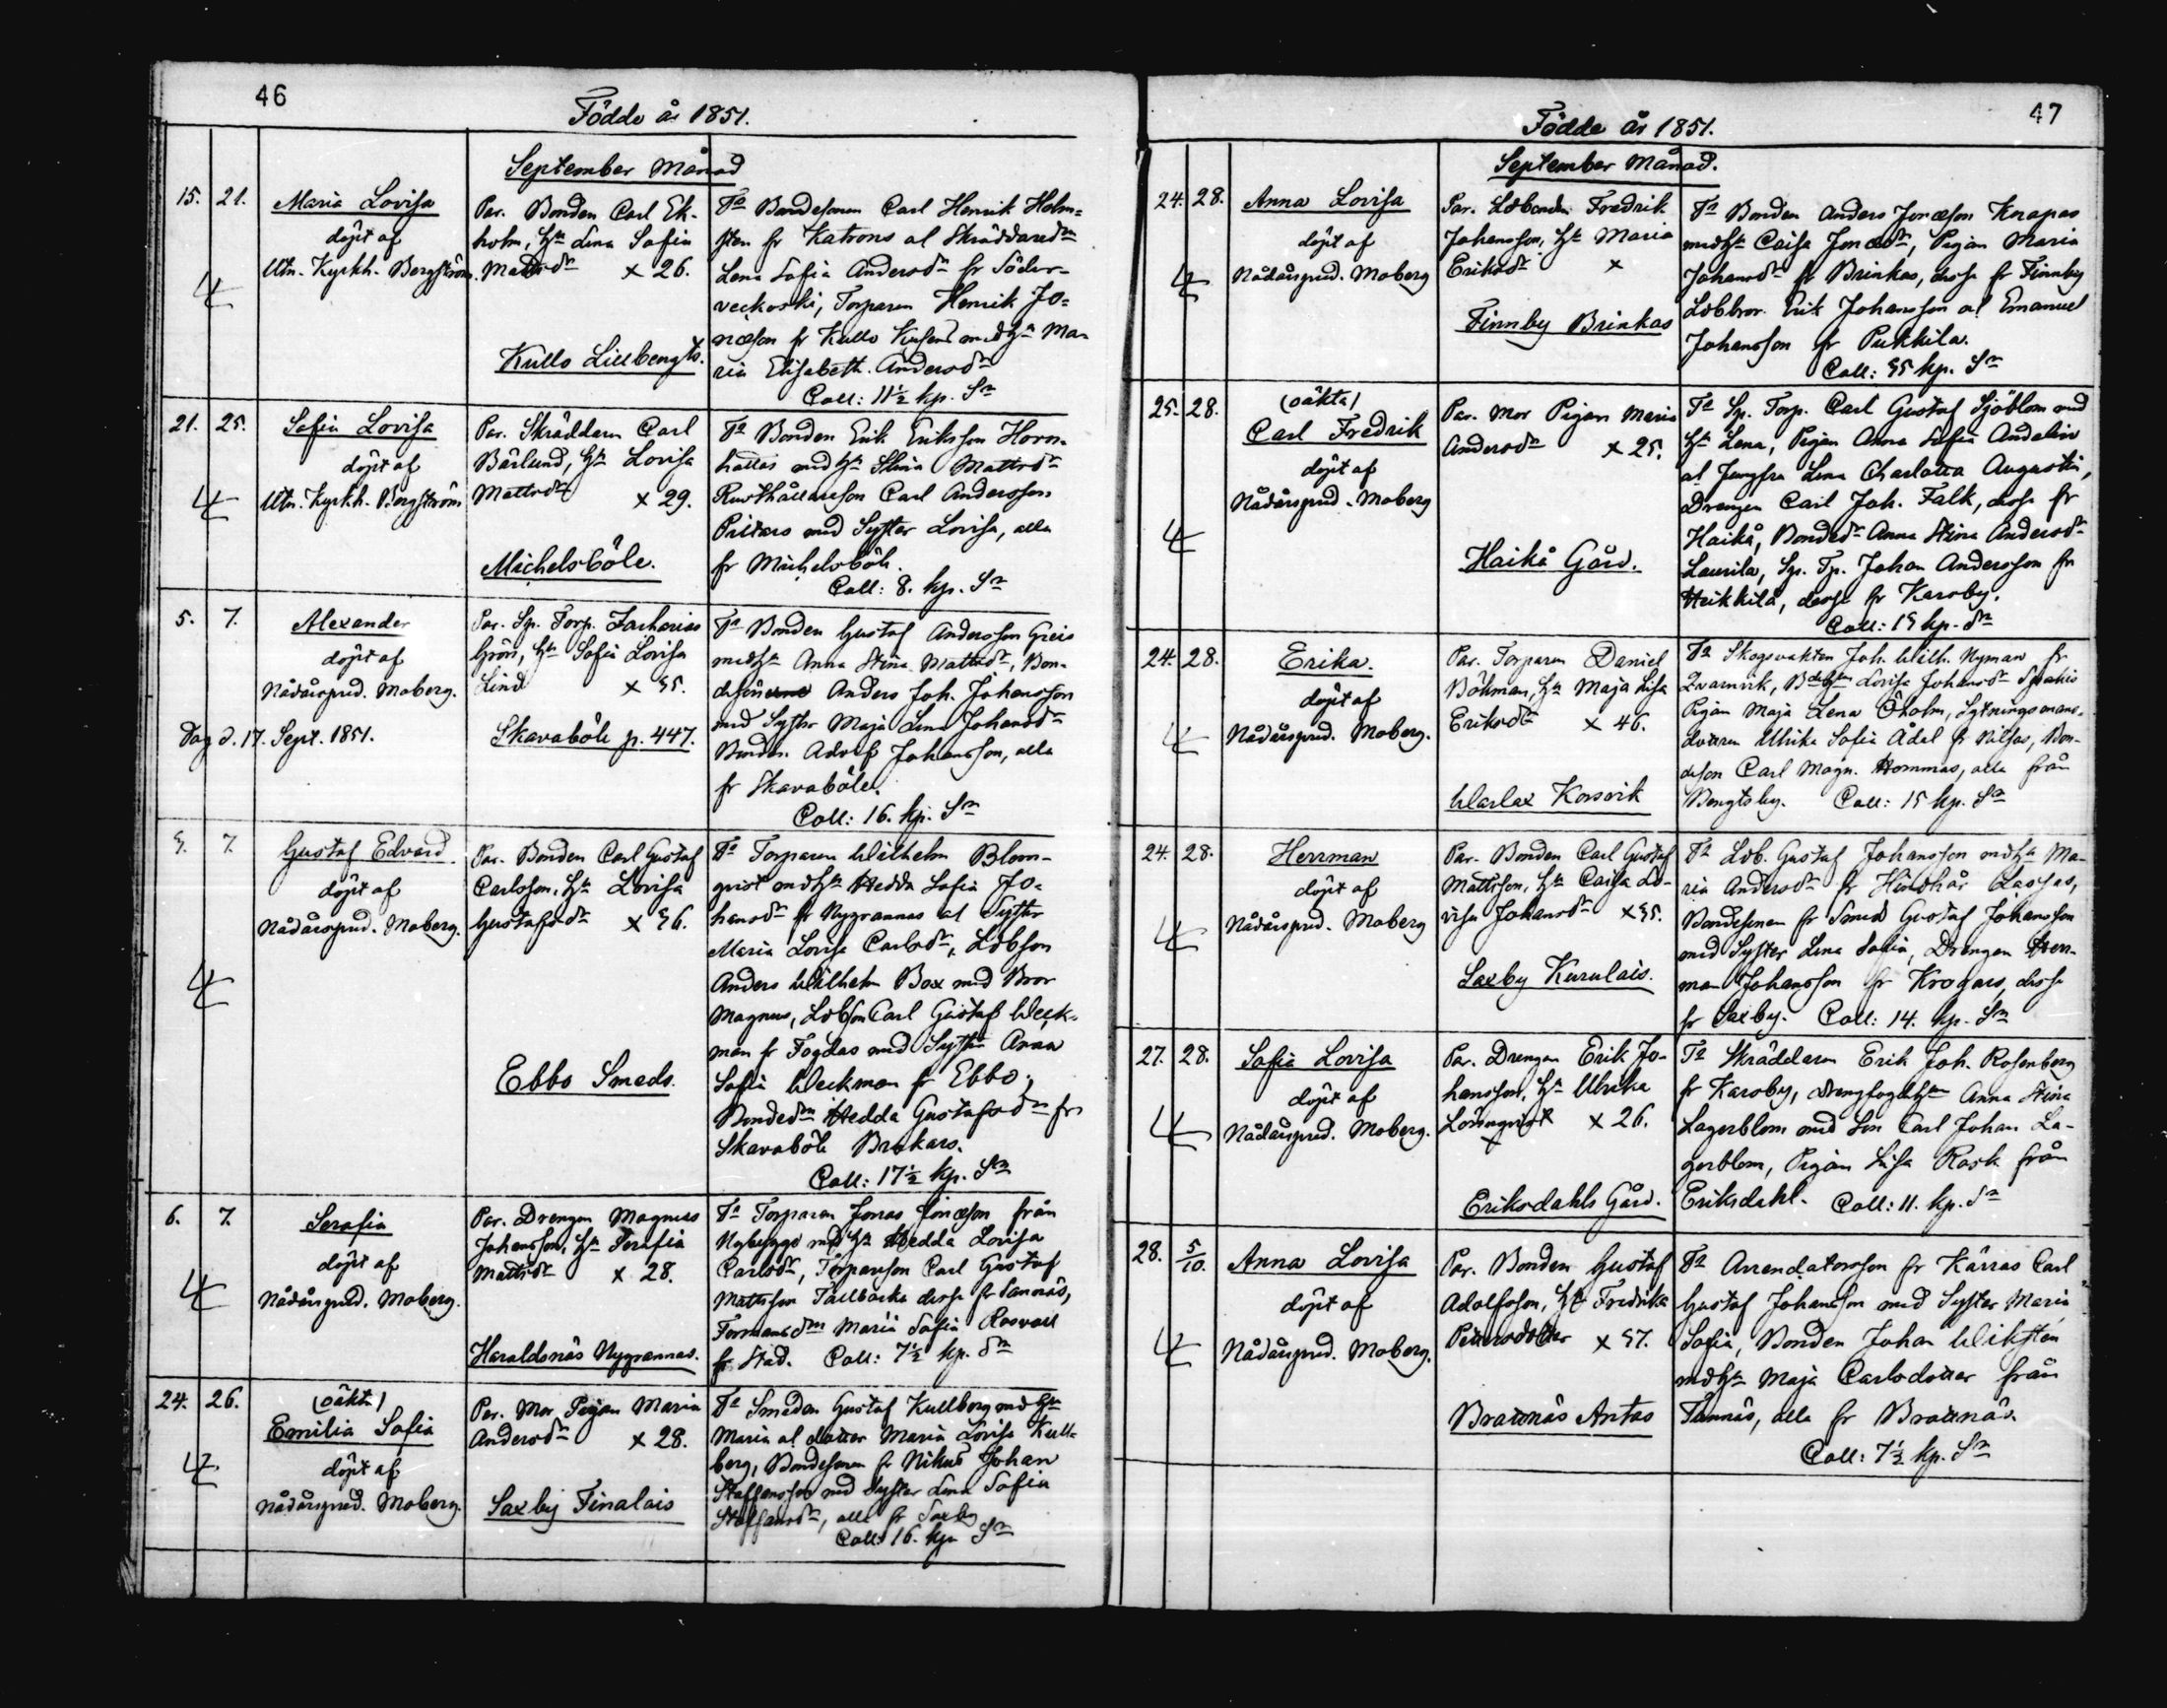 46
Födde år 1851.
September Månad
15. 21. Maria Lovisa
döpt af
Utn. Kyrkh. Bergström
Par. Bonden Carl Ek-
holm, Hu Lena Sofia
Mattsdr x 26.
Kullo Lillbengts.
Fa Bondesonen Carl Henrik Holm-
sten fr Katrons al Skräddaredn
Lena Sofia Andersdr fr Söder-
veckoski, Torparen Henrik Jo-
næson fr Kullo med Hu Ma-
ria Elisabeth Andersdr
Coll: 11½ kp. Sr
21. 25. Sofia Lovisa
döpt af
Utn. Kyrkh. Bergström
Par. Skräddaren Carl
Bärlund, Hu Lovisa
Mattsdr x 29.
Michelsböle.
Fa Bonden Erik Eriksson Horn-
hattas med Hu Stina Mattsdr
Rusthållareson Carl Andersson
Pitars med Syster Lovisa, alla
fr Michelsböle.
Coll: 8. kp. Sr
5. 7. Alexander
döpt af
Nådårspred. Moberg.
Dag d. 17. Sept. 1851.
Par. Sp. Torp. Zacharias
Grön, Hu Sofia Lovisa
Lind x 35.
Skavaböle p. 447.
Fa Bonden Gustaf Andersson Greis
med Hu Anna Stina Mattsdr, Bon-
desönerne Anders Joh. Johansson
med Syster Maja Lena Johansdr
Bondes. Adolf Johansson, alla
fr Skavaböle.
Coll: 16. kp. Sr
3. 7. Gustaf Edvard
döpt af
Nådårspred. Moberg.
Par. Bonden Carl Gustaf
Carlsson, Hu Lovisa
Gustafsdr x 36.
Ebbo Smeds.
Fa Torparen Wilhelm Blom-
qvist med Hu Hedda Sofia Jo-
hansdr fr Nygrannas al Syster
Maria Lovisa Carlsdr, Ldbson
Anders Wilhelm Box med Bror
Magnus, Ldbson Carl Gustaf Weck-
man fr Fogdas med Syster Anna
Sofia Weckman fr Ebbo,
Bondedn Hedda Gustafsdr fr
Skavaböle Brokars.
Coll: 17½ kp. Sr
6. 7. Serafia
döpt af
Nådårspred. Moberg.
Par. Drengen Magnus
Johansson, Hu Serafia
Mattsdr x 28.
Haraldsnäs Nygrannas.
Fa Torparen Jonas Jonæson från
Nybygge med Hu Hedda Lovisa
Carlsdr, Torpareson Carl Gustaf
Mattsson Tallbacka desse fr Tannäs,
Formansdn Maria Sofia Rosvall
fr Stad. Coll: 7½ kp. Sr
24. 26. (oäkta)
Emilia Sofia
döpt af
Nådårspred. Moberg.
Par. Mor Pigan Maria
Andersdr x 28.
Saxby Finalais
Fa Smeden Gustaf Kullberg med Hu
Maria al dotter Maria Lovisa Kull-
berg, Bondesonen fr Nikus Johan
Staffansson med Syster Lena Sofia
Staffansdr, alla fr Saxby
Coll: 16. kp. Sr
47
Födde år 1851.
September Månad.
24. 28. Anna Lovisa
döpt af
Nådårspred. Moberg
Par. Ldbonden Fredrik
Johansson, Hu Maria
Eriksdr x
Finnby Brinkas
Fa Bonden Anders Jonæson Knapas
med Hu Caisa Jonædr, Pigan Maria
Johansdr fr Brinkas, desse fr Finnby
Ldbbror. Erik Johansson al Emanuel
Johansson fr Pukkila.
Coll: 35 kp. Sr
25. 28. (oäkta)
Carl Fredrik
döpt af
Nådårspred. Moberg
Par. Mor Pigan Maria
Andersdr x 25.
Haikå Gård.
Fa Sp. Torp. Carl Gustaf Sjöblom med
Hu Lena, Pigan Anna Sofia Andelin
al Jungfru Lena Charlotta Augustin,
Drengen Carl Joh. Falk, desse fr
Haikå, Bondedn Anna Stina Andersdr
Laurila, Sp. Tp. Johan Andersson fr
Heikkilä, desse fr Karoby.
Coll: 15 kp. Sr
24. 28. Erika.
döpt af
Nådårspred. Moberg.
Par. Torparen Daniel
Böhman, Hu Maja Lisa
Eriksdr x 46.
Warlax Korsvik
Fa Skogsvakten Joh. Wilh. Nyman fr
Qvarnvik, Lovisa Johansdr
Pigan Maja Lena Öholm, Sytningsmans-
dottren Ulrika Sofia Ådal fr Nilsas, Bon-
deson Carl Magn. Hommas, alla från
Bengtsby. Coll: 15 kp. Sr
24. 28. Herrman
döpt af
Nådårspred. Moberg
Par. Bonden Carl Gustaf
Mattsson, Hu Caisa Lo-
visa Johansdr x 35.
Saxby Kurulais.
Fa Ldb. Gustaf Johansson med Hu Ma-
ria Andersdr fr Hindhår Lassas,
Bondesonen fr Smed Gustaf Johansson
med Syster Lena Sofia, Drengen Herr-
man Johansson fr Krogars, desse
fr Saxby. Coll: 14. kp. Sr
27. 28. Sofia Lovisa
döpt af
Nådårspred. Moberg.
Par. Drengen Erik Jo-
hansson, Hu Ulrika
Lönnqvist x 26.
Eriksdahls Gård.
Fa Skräddaren Erik Joh. Rosenberg
fr Karoby, Anna Stina
Lagerblom med Son Carl Johan La-
gerblom, Pigan Lisa Rask från
Eriksdahl. Coll: 11. kp. Sr
28. 5/10. Anna Lovisa
döpt af
Nådårspred. Moberg.
Par. Bonden Gustaf
Adolfsson, Hu Fredrika
Pettersdotter x 37.
Brattnäs Antas
Fa Arrendatorsson fr Kärras Carl
Gustaf Johansson med Syster Maria
Sofia, Bonden Johan Wiksten
med Hu Maja Carlsdotter från
Tannäs, alla fr Brattnäs.
Coll: 7½ kp. Sr